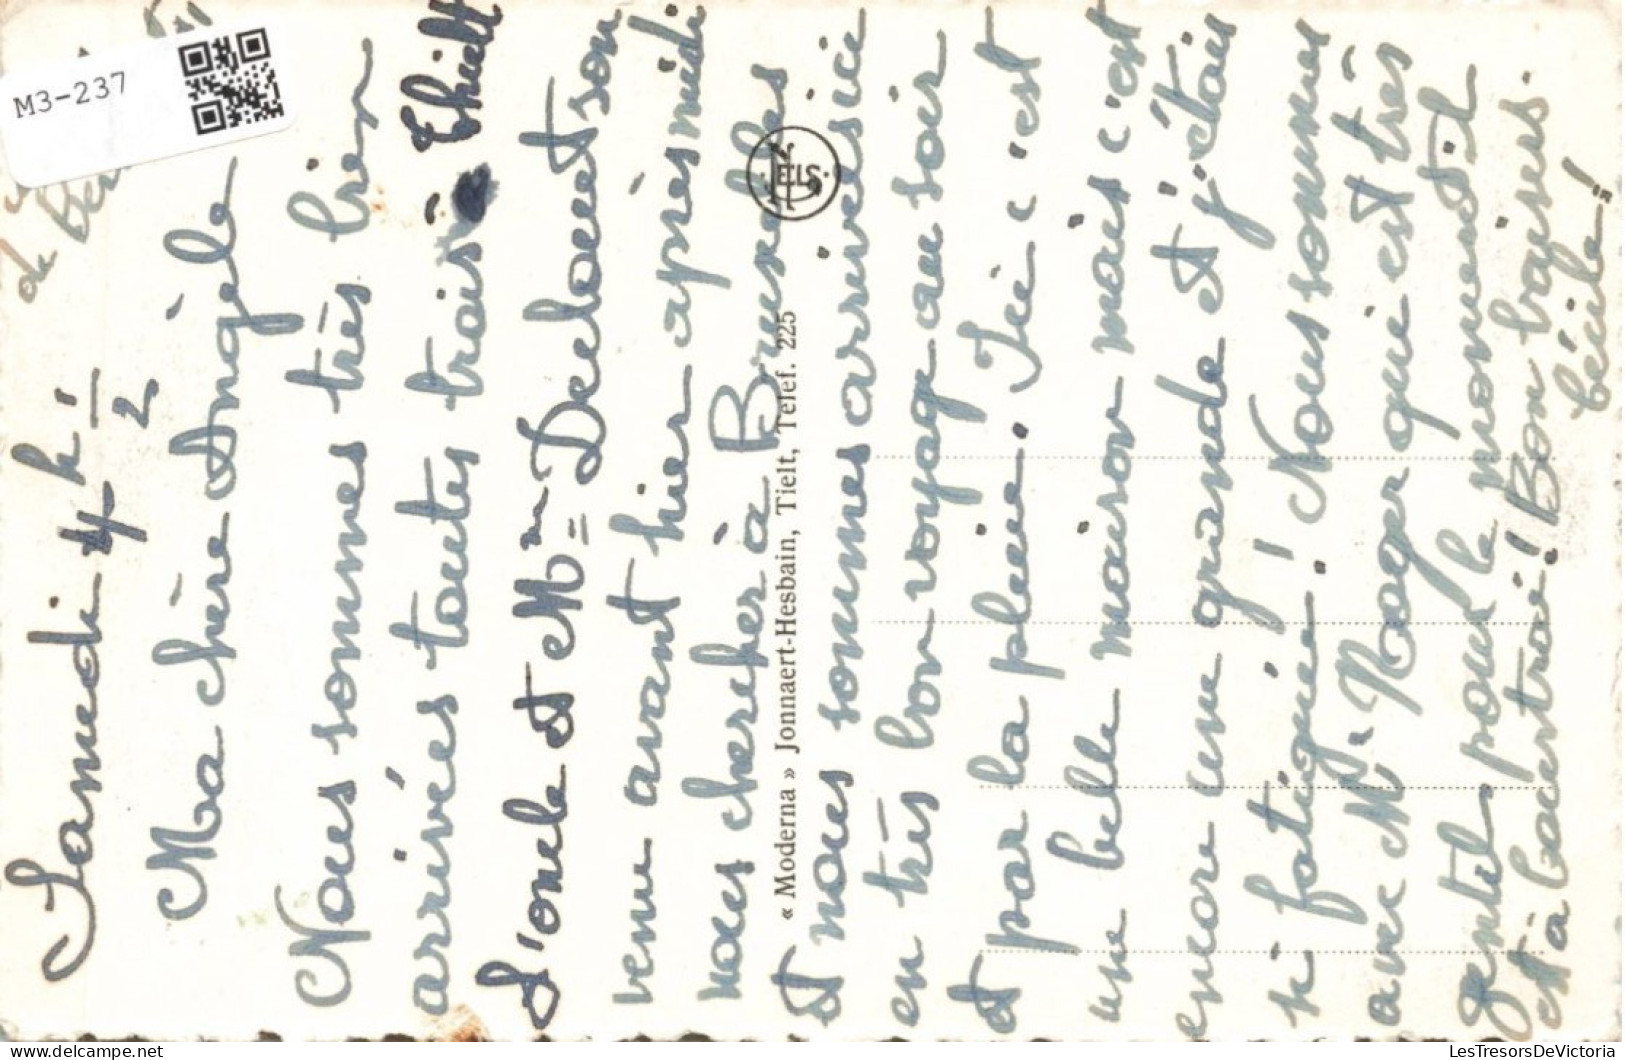 M3-237
de
Samedi 4 h 1/2
Ma chère Angèle
Nous sommes très bien
arrivées toutes trois à Thielt
L'oncle et Mr Declouet son
venu avant hier après midi
nous chercher à Bruxelles
et nous sommes arrivés ici
en très bon voyage au soir
et par la pluie. Ici c'est
une belle maison mais c'est
encore une grande et j'étais
si fatiguée! Nous sommes
avec Mr. Roger qui est très
gentil pour le moment
et à bientôt! Bon baisers.
Cécile!
« Moderna » Jonnaert-Hesbain, Tielt, Telef. 225
ELS
LesTresorsDeVictoria
delcampe.net